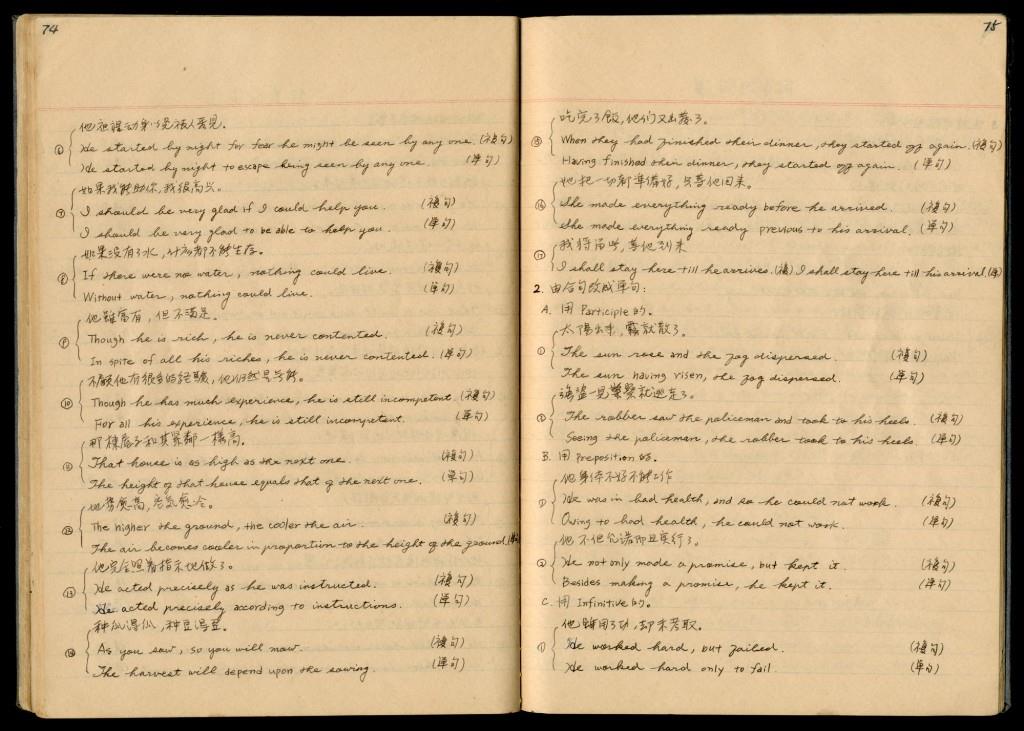 74
⑥ He started by night for fear he might be seen by any one. (複句)
He started by night to escape being seen by any one. (単句)
如果我能助你,我很高兴。
⑦ I should be very glad if I could help you. (複句)
I should be very glad to be able to help you. (単句)
如果没有了水,什広都不能生存。
⑧ If there were no water, nothing could live. (複句)
Without water, nothing could live. (単句)
他雖富有,但不满足。
⑨ Though he is rich, he is never contented. (複句)
In spite of all his riches, he is never contented. (単句)
⑩ Though he has much experience, he is still incompetent. (複句)
For all his experience, he is still incompetent. (単句)
那棟房子和其鄰都一樣高。
⑪ That house is as high as the next one. (複句)
The height of that house equals that of the next one. (単句)
地勢愈高,空気愈冷。
⑫ The higher the ground, the cooler the air. (複句)
The air becomes cooler in proportion to the height of the ground.
他完全照着指示地做了。
⑬ He acted precisely as he was instructed. (複句)
He acted precisely according to instructions. (単句)
種瓜得瓜,种豆得豆。
⑭ As you sow, so you will mow. (複句)
The harvest will depend upon the sowing. (単句)
75
吃完了飯,他们又出發了。
⑮ When they had finished their dinner, they started off again. (複句)
Having finished their dinner, they started off again. (単句)
她把一切都準備好,只等他回来。
⑯ She made everything ready before he arrived. (複句)
She made everything ready previous to his arrival. (単句)
我將留此,等他到来
⑰ I shall stay here till he arrives. (複) I shall stay here till his arrival. (単)
2. 由合句改成単句:
A. 用 Participle 的。
太陽出来,霧就散了。
① The sun rose and the fog dispersed. (複句)
The sun having risen, the fog dispersed. (単句)
② The robber saw the policeman and took to his heels. (複句)
Seeing the policeman, the robber took to his heels. (単句)
B. 用 Preposition 的。
他身体不好不能工作
① He was in bad health, and so he could not work. (複句)
Owing to bad health, he could not work. (単句)
他不但允诺而且实行了。
② He not only made a promise, but kept it. (複句)
Besides making a promise, he kept it. (単句)
C. 用 Infinitive 的。
他雖用了功,却未考取。
① He worked hard, but failed. (複句)
He worked hard only to fail. (単句)